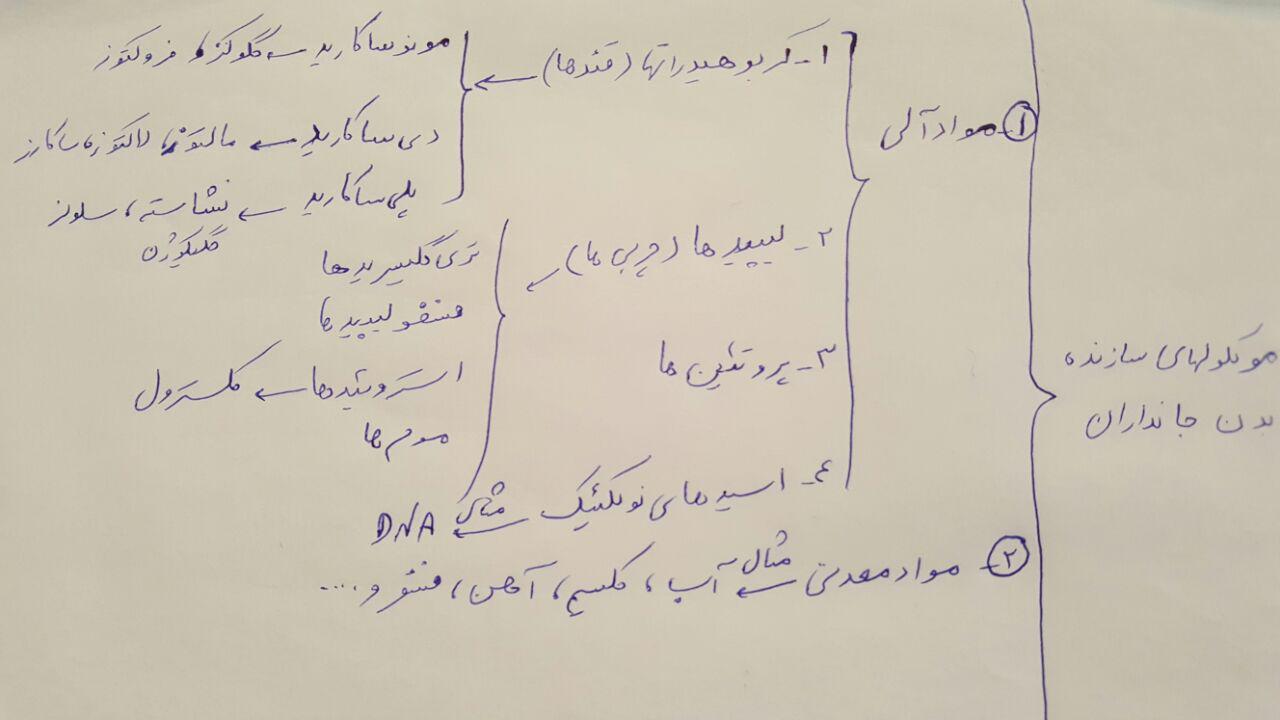 مولکولهای سازنده
بدن جانداران
۱- مواد آلی
۱- کربوهیدراتها (قندها) ←
مونوساکارید ← گلوکز، فروکتوز
دی ساکارید ← مالتوز، لاکتوز، ساکارز
پلی ساکارید ← نشاسته، سلولز
گلیکوژن
۲- لیپید ها (چربی ها) ←
تری گلیسریدها
فسفولیپید ها
استروئیدها ← کلسترول
موم ها
۳- پروتئین ها
۴- اسیدهای نوکلئیک مثال ← DNA
۲- مواد معدنی مثال ← آب، کلسیم، آهن، فسفر و ....